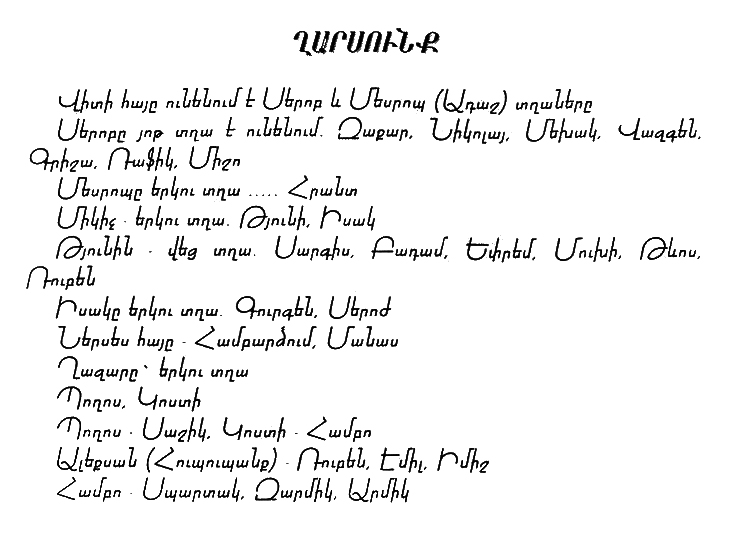 ՂԱՐՍՈՒՆՔ
Վիտի հայը ունենում է Սերոբ և Մեսրոպ (Ադաշ) տղաները
Սերոբը յոթ տղա է ունենում. Զաքար, Նիկոլայ, Մեխակ, Վազգեն,
Գրիշա, Ռաֆիկ, Միշո
Մեսրոպը երկու տղա ..... Հրանտ
Միկիչ - երկու տղա. Թյունի, Իսակ
Թյունին - վեց տղա. Սարգիս, Բադամ, Եփրեմ, Մուխի, Թևոս,
Ռուբեն
Իսակը երկու տղա. Գուրգեն, Սերոժ
Ներսես հայը - Համբարձում, Մանաս
Ղազարը՝ երկու տղա
Պողոս, Կոստի
Պողոս - Սաշիկ, Կոստի - Համբո
Ալեքսան (Հուպուպանք) - Ռուբեն, Էմիլ, Իմիշ
Համբո - Սպարտակ, Զարմիկ, Արմիկ